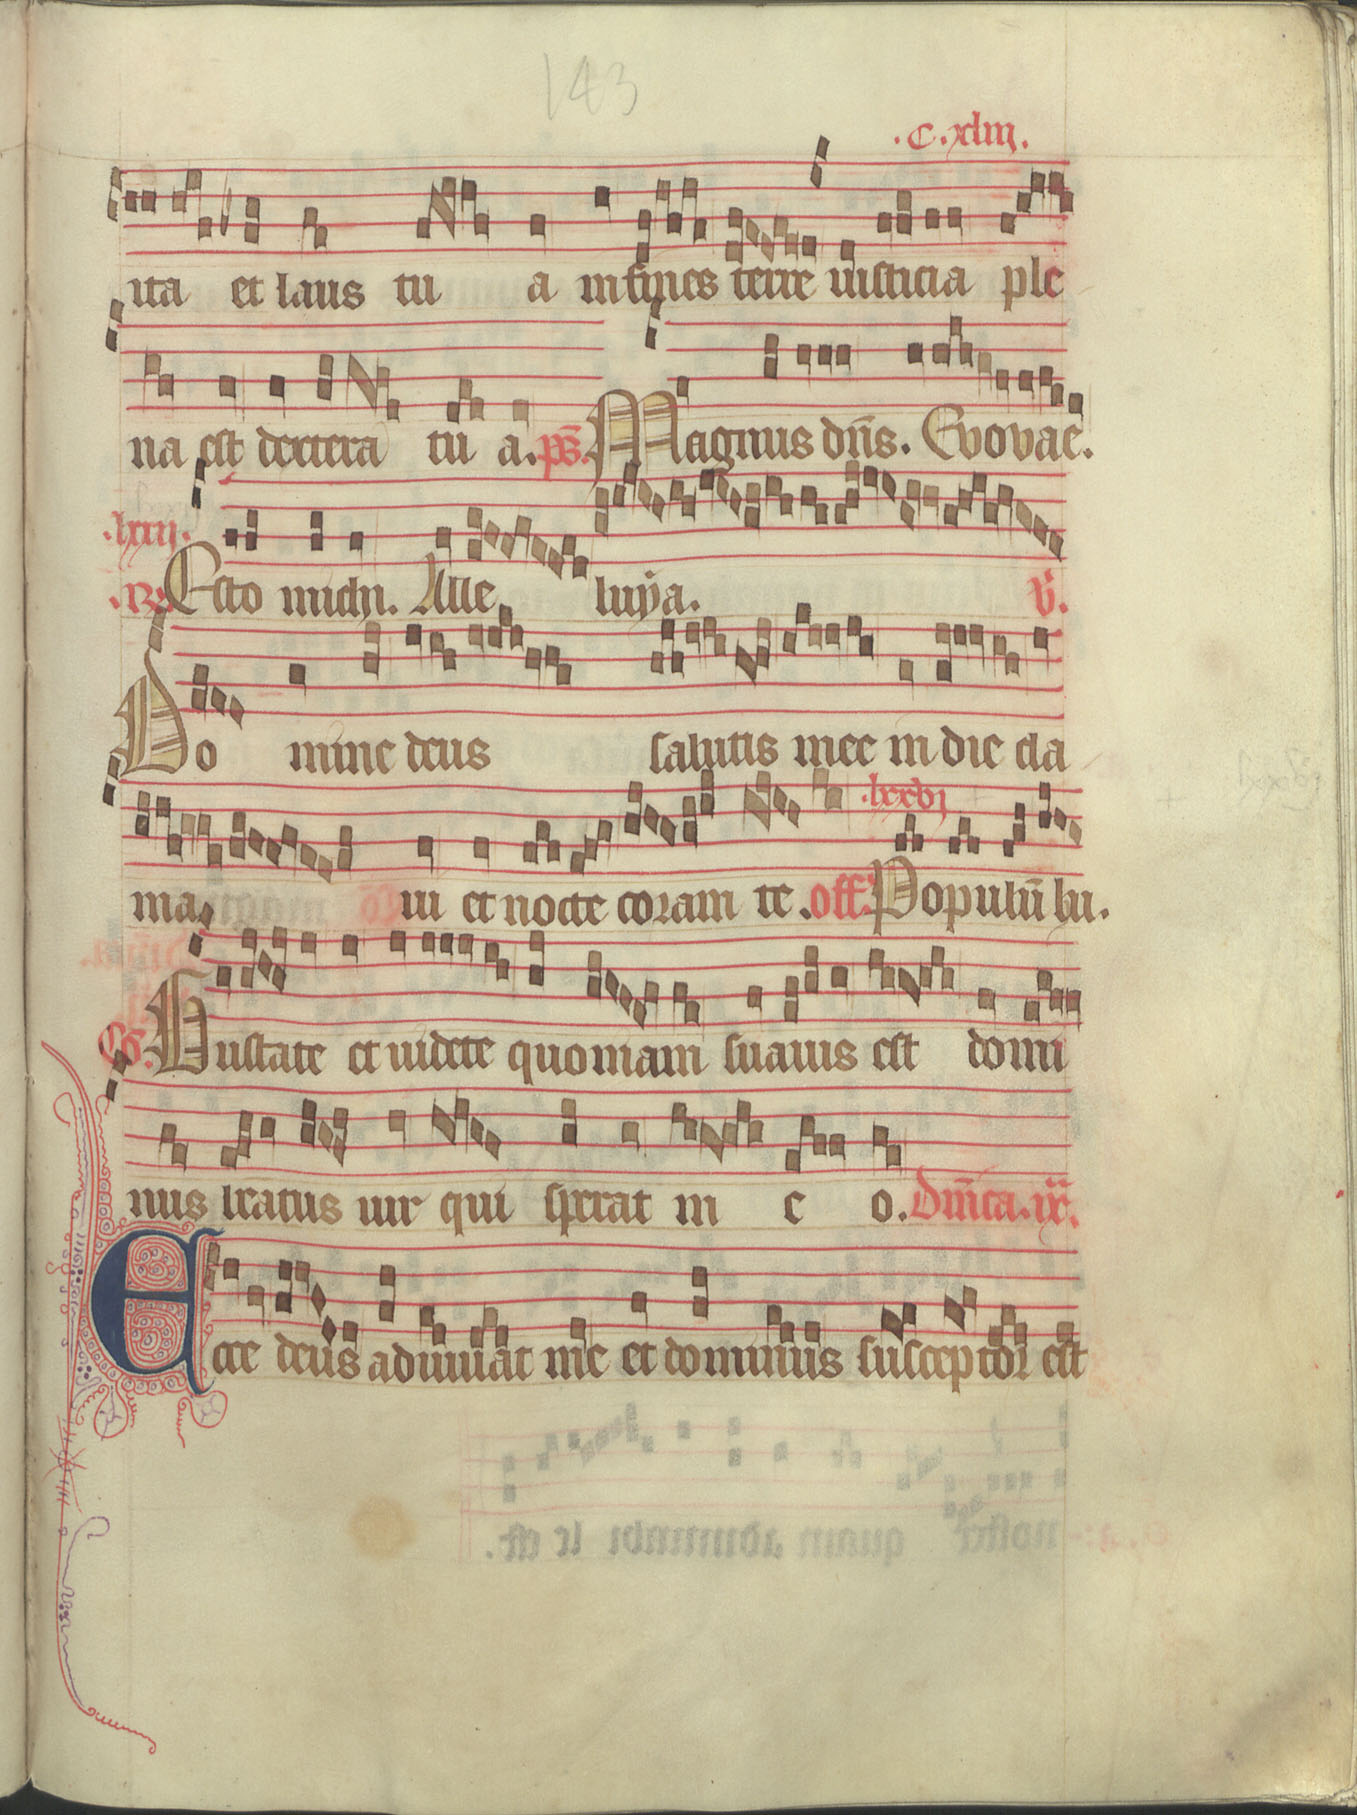 143
.C.xliii.
ita et laus tu a in fines terre iusticia ple
na est dextera tu a. ps̄. Magnus dn̄s. Evovae.
.lxxii.
.R. Esto michi. Alle luya. v̄.
Do mine deus salutis mee in die cla
.lxxvi
ma ui et nocte coram te. off. Populū hu.
Cō. Gustate et uidete quoniam suauis est domi
nus beatus uir qui sperat in e o. Dn̄ica. ix.
Ecce deus adiuuat me et dominus susceptor est